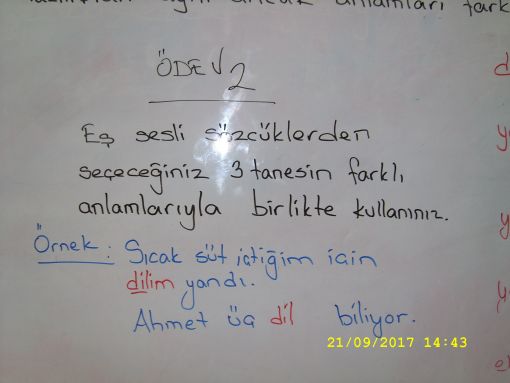 ancak anlamları fark
ÖDEV 2
Eş sesli sözcüklerden
seçeceğiniz 3 tanesin farklı
anlamlarıyla birlikte kullanınız.
Örnek: Sıcak süt içtiğim için
dilim yandı.
Ahmet üç dil biliyor.
21/09/2017 14:43